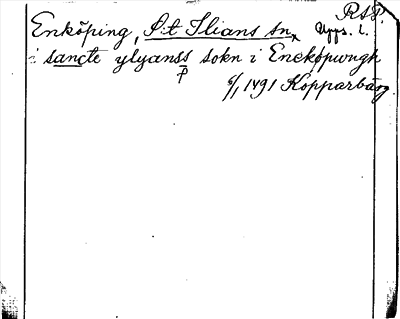 RAP.
Enköping, S:t Ilians sn, Upps. l.
i sancte ylyanss sokn i Encköpungh
P
6/1 1491 Kopparbärg.